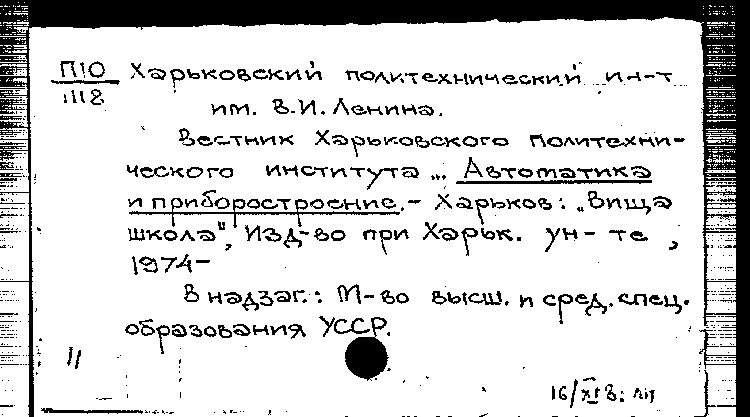 П10 Харьковский политехнический ин-т
1118 им. В.И. Ленина.
Вестник Харьковского политехни-
ческого института ... Автоматика
и приборостроение. - Харьков: „Вища
школа", Изд-во при Харьк. ун-те,
1974-
В надзаг.: М-во высш. и сред. спец.
образования УССР.
11
16/XI